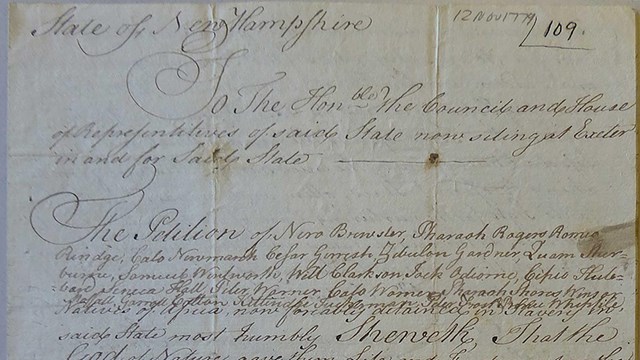 State of New Hampshire
12 NOV 1779
109.
To The Hon.ble The Council and House
of Representitives of said State now siting at Exeter
in and for Said State
The Petition of Nero Brewster, Pharaoh Rogers Romeo
Rindge, Cato Newmarch Cesar Gerrish, Zebulon Gardner, Quam Sher-
burne, Samuel Wentworth, Will Clarkson Jack Odiorne, Cipio Hub-
bard Seneca Hall Peter Warner, Cato Warner Pharaoh Shores Winsor
Moffatt Garrott Cotton Kittindge Tuckerman Peter Frost Prince Whipple
Natives of Africa now forcibly detained in Slavery in
said State most humbly Sheweth, That the
God of Nature gave them life and